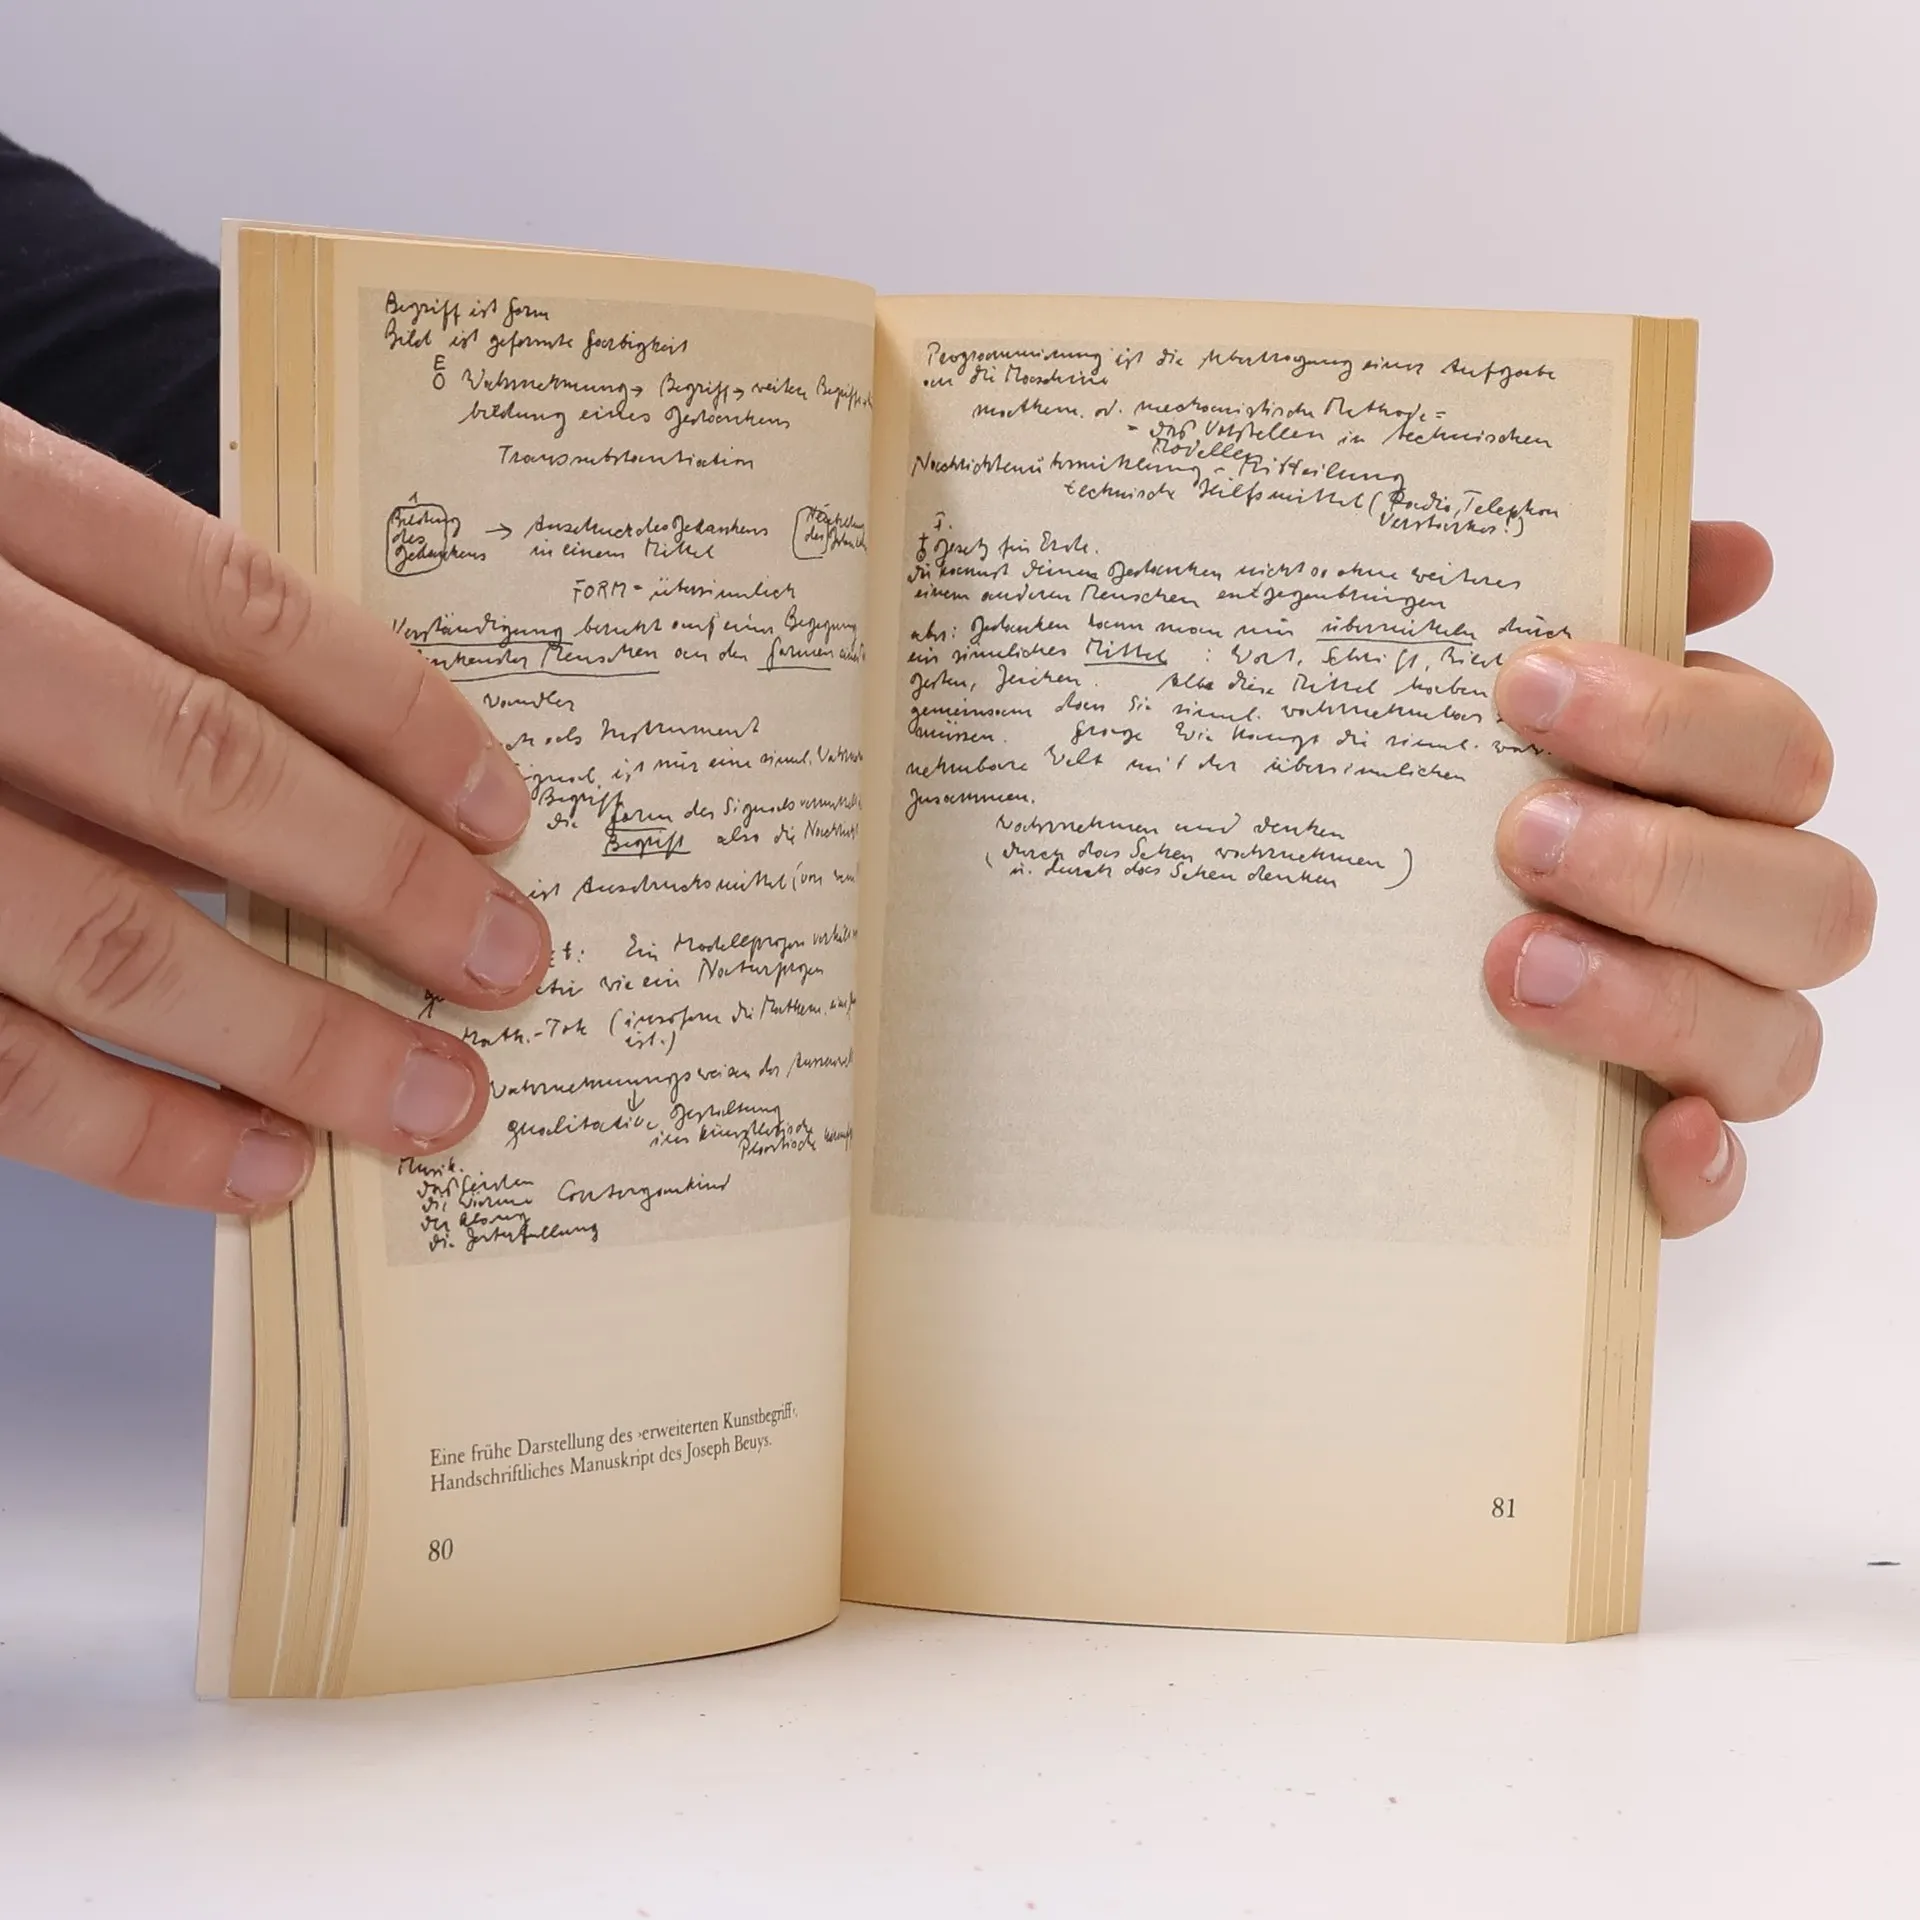 Begriff ist Form
Bild ist geformte Farbigkeit
E
O Wahrnehmung → Begriff → weitere Begriffe
bildung eines Gedankens
Transsubstantiation
Bildung
des
Gedankens
→ Ausdruck des Gedankens
in einem Mittel
des
FORM = übersinnlich
Verständigung beruht auf einer Begegnung
Menschen an den Formen
Wandler
als Instrument
ist nur eine sinnl.
Begriff
die Form des Signals
Begriff also die
ist Ausdrucksmittel (von
Ein Modellprozess
wie ein Naturprozess
Math. - (insofern die Mathem.
ist.)
Wahrnehmungsweisen der
↓
qualitative Gestaltung
ins Künstlerische
Plastische
Musik.
das Leiden
die Wärme Contergankind
der Klang
die
Eine frühe Darstellung des ›erweiterten Kunstbegriff‹.
Handschriftliches Manuskript des Joseph Beuys.
80
Programmierung ist die Übertragung einer Aufgabe
an die Maschine
mathem. od. mechanistische Methode =
= das Vorstellen in technischen
Modellen
Nachrichtenübermittlung = Mitteilung
technische Hilfsmittel (Radio, Telephon
Verstärker!)
1.
Gesetz für Erde.
du kannst deinen Gedanken nicht so ohne weiteres
einem anderen Menschen entgegenbringen
aber: Gedanken kann man nur übermitteln durch
ein sinnliches Mittel : Wort, Schrift, Bild
Gesten, Zeichen. Alle diese Mittel haben
gemeinsam dass Sie sinnl. wahrnehmbar
müssen. Frage Wie hängt die sinnl. wahr-
nehmbare Welt mit der übersinnlichen
zusammen.
Wahrnehmen und denken
(durch das Sehen wahrnehmen)
u. durch das Sehen denken
81